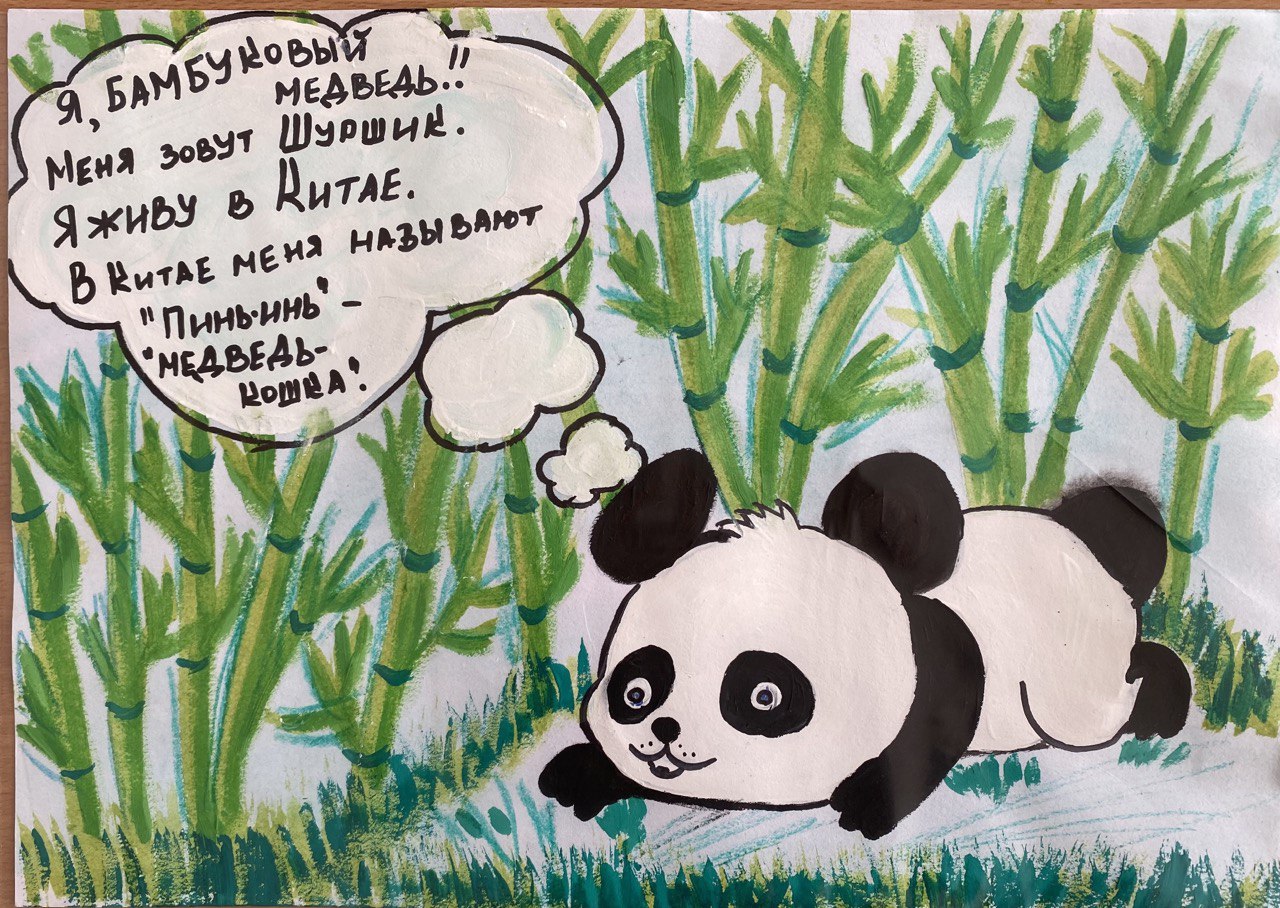 Я, БАМБУКОВЫЙ
МЕДВЕДЬ!!
Меня зовут Шуршик.
Я живу в Китае.
В Китае меня называют
"Пинь-инь" -
"медведь-
кошка".